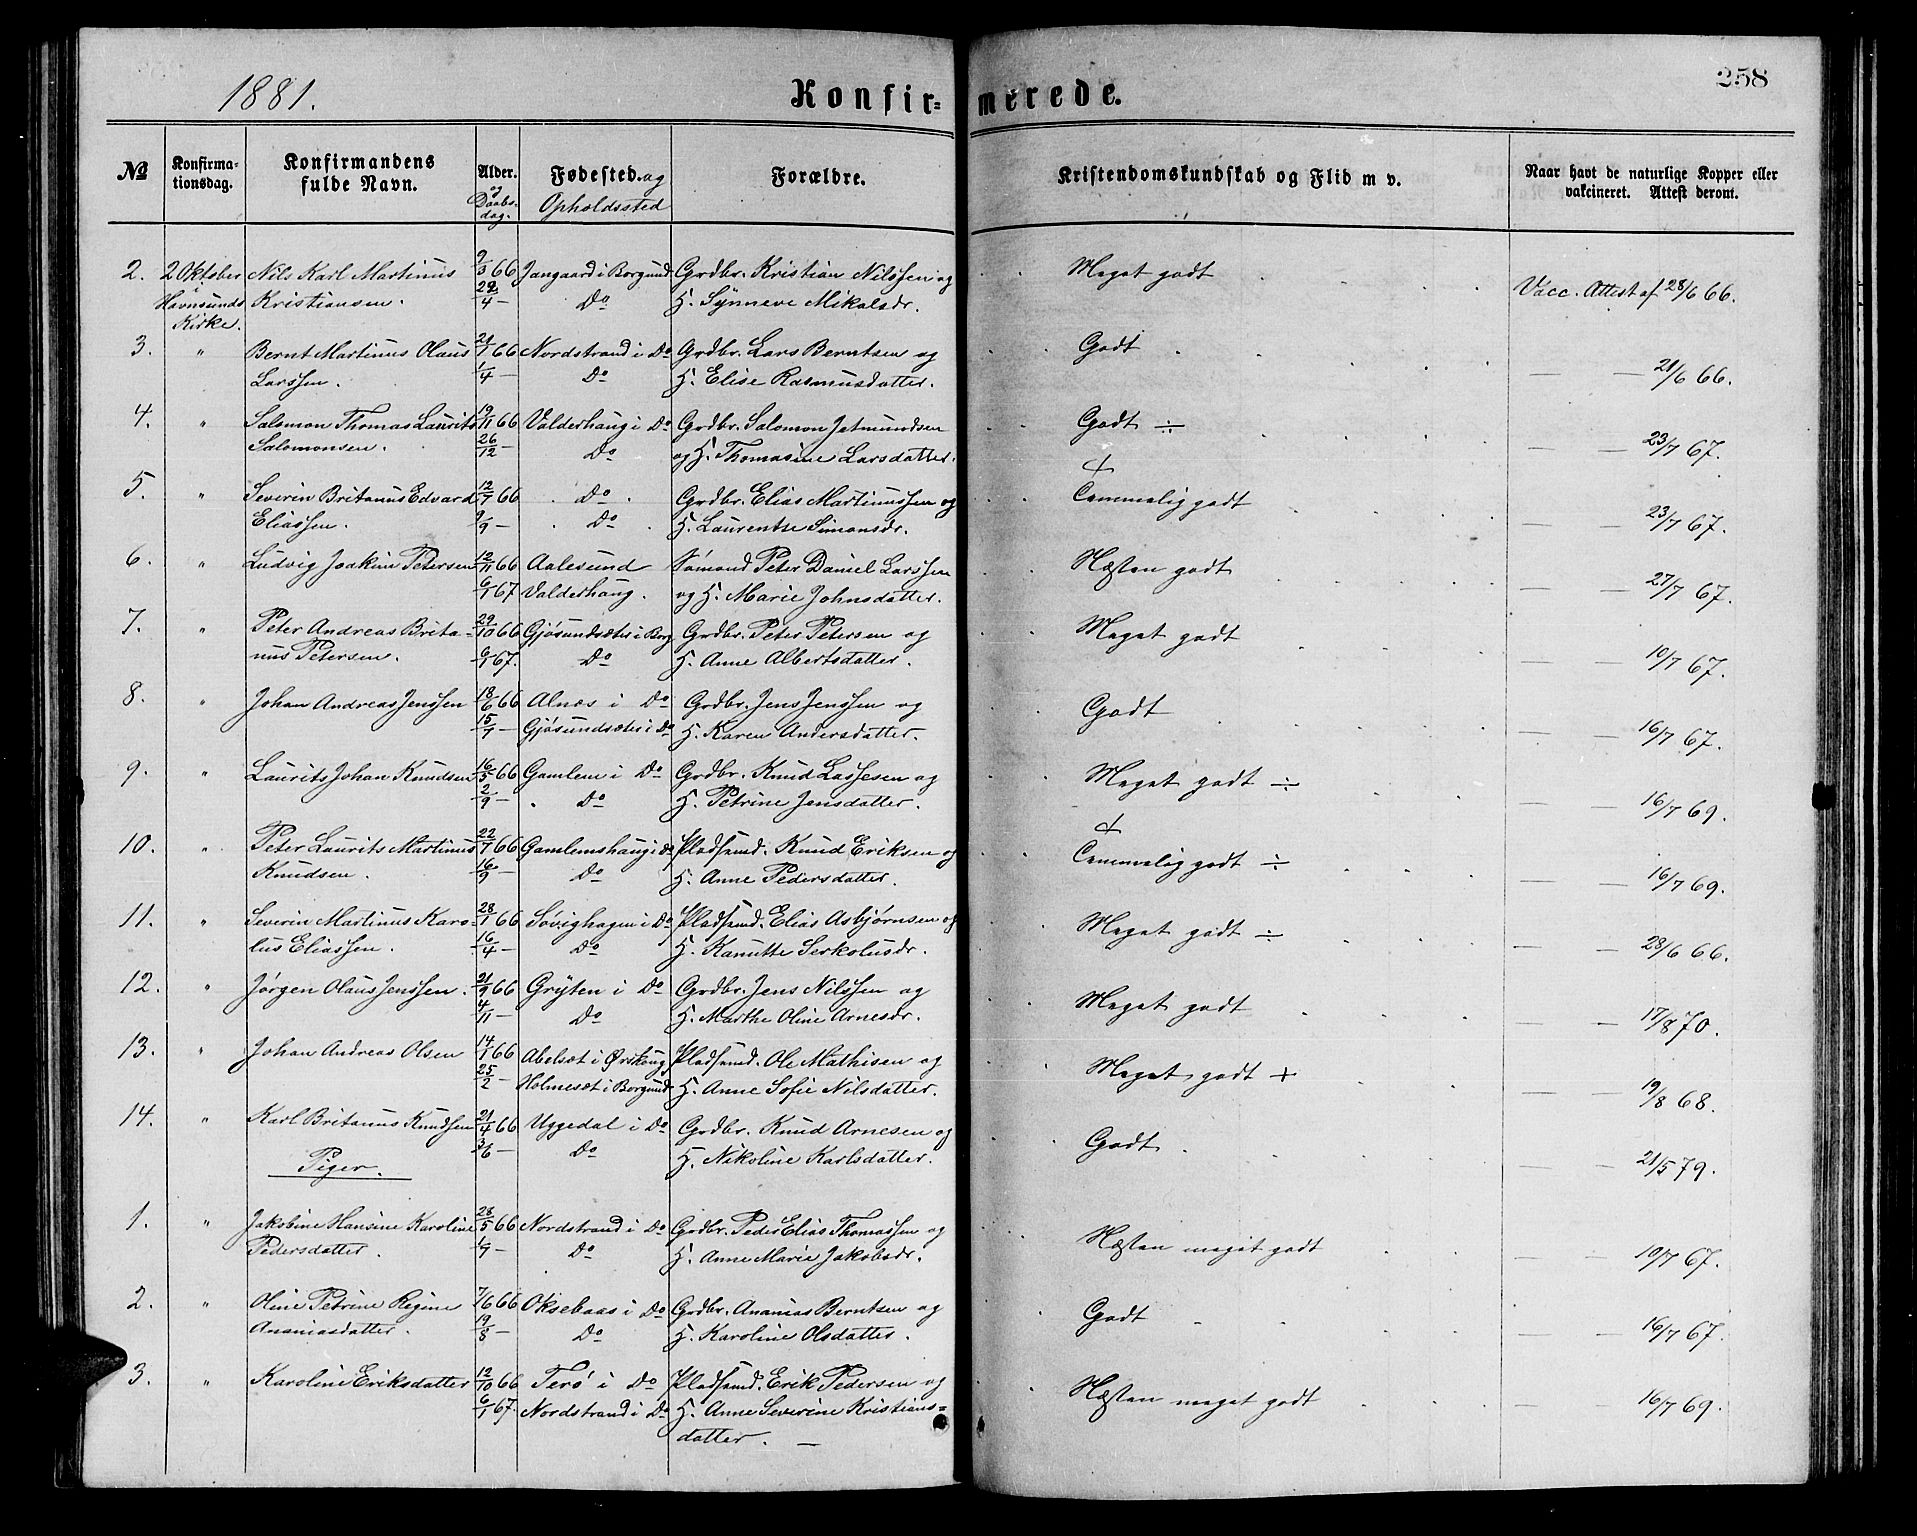 1881.
Konfir-
merede.
258
No
Konfirma-
tionsdag.
Konfirmandens
fulde Navn.
Alder.
og
Daabs-
dag.
Fødested. og
Opholdssted
Forældre.
Kristendomskundskab og Flid m v.
Naar havt de naturlige Kopper eller
vakcineret. Attest derom.
2. 2 Oktober Nils Karl Martinus 2/3 66 Jangaard i Borgund Grdbr. Kristian Nilssen og Meget godt
i Havnsunds Kristiansen. 22/4 — Do H. Synneve Mikalsdr. Vacc. Attest af 28/6 66.
Kirke.
3. " Bernt Martinus Olaus 21/1 66 Nordstrand i Do Grdbr. Lars Berntsen og Godt
Larssen. 1/4 — Do H. Elise Rasmusdatter. — — 21/6 66.
4. " Salomon Thomas Laurits 19/11 66 Valderhaug i Do Grdbr. Salomon Jetmundsen Godt ÷
Salomonsen. 26/12 — Do og H. Thomasine Larsdatter. — — 23/7 67.
5. " Severin Britanus Edvard 12/7 66 Do Grdbr. Elias Martinussen og Temmelig godt
Eliassen. 9/9 — Do H. Laurentse Simonsdr. — 23/7 67.
6. " Ludvig Joakim Petersen 12/11 66 Aalesund Sømand Peter Daniel Larssen Næsten godt
6/1 67 Valderhaug. og H. Marie Johnsdatter. — — 27/7 67.
7. " Peter Andreas Brita- 29/10 66 Gjøsundsæter i Borg Grdbr. Peter Petersen og Meget godt
nus Petersen. 6/1 67. Do H. Anne Albertsdatter. — — 10/7 67.
8. " Johan Andreas Jenssen 18/6 66 Alnæs i Do Grdbr. Jens Jenssen og Godt
15/7 — Gjøsundsæter i Do H. Karen Andersdatter. — — 16/7 67.
9. " Laurits Johan Knudsen 16/5 66 Gamlem i Do Grdbr. Knud Lassesen og Meget godt ÷
2/9 — " Do H. Petrine Jensdatter. — — 16/7 69.
10. " Peter Laurits Martinus 22/7 66 Gamlemshaug i Do Pladsmd. Knud Eriksen og Temmelig godt ÷
Knudsen. 16/9 Do H. Anne Pedersdatter. — 16/7 69.
11. " Severin Martinus Karo- 28/1 66 Søvighagen i Do Pladsmd. Elias Asbjørnsen og Meget godt ÷
lus Eliassen. 16/4 — Do H. Kanutte Serkolusdr. — — 28/6 66.
12. " Jørgen Olaus Jenssen. 21/9 66 Gryten i Do Grdbr. Jens Nilssen og Meget godt
4/11 — Do H. Marthe Oline Arnesdr. — — 17/8 70.
13. " Johan Andreas Olsen 14/1 66 Abelsæt i Ørskoug Pladsmd. Ole Mathisen og Meget godt +
25/2 — Holmesæt i Borgund H. Anne Sofie Nilsdatter. — — 19/8 68.
14. " Karl Britanus Knudsen 21/4 66 Uggedal i Do Grdbr. Knud Arnesen og Godt
3/6 — Do H. Nikoline Karlsdatter. — — 21/5 79.
Piger.
1. " Jakobine Hansine Karoline 28/5 66 Nordstrand i Do Grdbr. Peder Elias Thomassen og Næsten meget godt
Pedersdatter. 1/9 — Do H. Anne Marie Jakobsdr. — — 10/7 67.
2. " Oline Petrine Regine 7/6 66 Oksebaas i Do Grdbr. Ananias Berntsen og Godt
Ananiasdatter. 19/8 — Do H. Karoline Olsdatter. — — 16/7 67.
3. " Karoline Eriksdatter 12/10 66 Terø i Do Pladsmd. Erik Pedersen og Næsten meget godt
6/1 67. Nordstrand i Do H. Anne Severine Kristians- — — 16/7 69.
datter. —